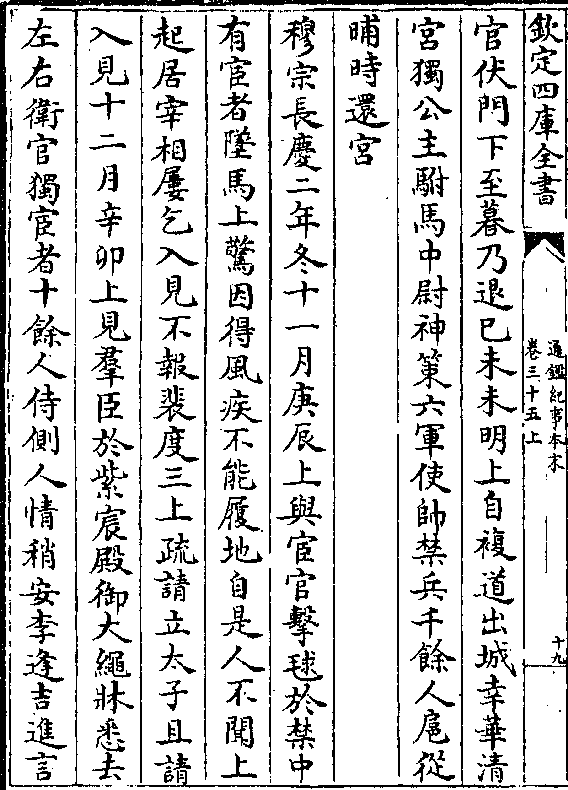 欽定四庫全書
通鑑紀事本末
卷三十五上
十九
官伏門下至暮乃退已未未明上自複道出城幸華清
宮獨公主駙馬中尉神策六軍使帥禁兵千餘人扈從
晡時還宮
穆宗長慶二年冬十一月庚辰上與宦官擊毬於禁中
有宦者墜馬上驚因得風疾不能履地自是人不聞上
起居宰相屢乞入見不報裴度三上疏請立太子且請
入見十二月辛卯上見羣臣於紫宸殿御大繩牀悉去
左右衛官獨宦者十餘人侍側人情稍安李逢吉進言